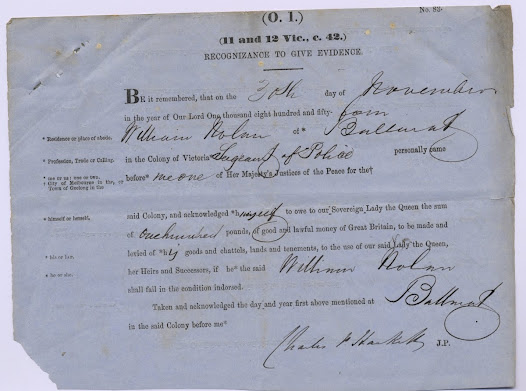 (O. 1.)
No. 82.
(11 and 12 Vic., c. 42.)
RECOGNIZANCE TO GIVE EVIDENCE.
BE it remembered, that on the 30th day of November
in the year of Our Lord One thousand eight hundred and fifty-four
* Residence or place of abode. William Nolan of* Ballarat
* Profession, Trade or Calling. in the Colony of Victoria Sergeant of Police personally came
* me or us: one or two. before* me one of Her Majesty's Justices of the Peace for the†
† City of Melbourne in the, or
Town of Geelong in the
* himself or herself. said Colony, and acknowledged *hymself to owe to our Sovereign Lady the Queen the sum
of one hundred pounds, of good and lawful money of Great Britain, to be made and
* his or her. levied of *his goods and chattels, lands and tenements, to the use of our said Lady the Queen,
* he or she. her Heirs and Successors, if he* the said William Nolan
shall fail in the condition indorsed.
Taken and acknowledged the day and year first above mentioned at Ballarat
in the said Colony before me*
Charles P Hackett J.P.